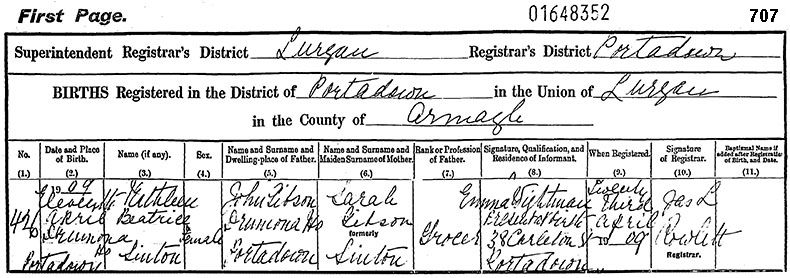 First Page. 01648352 707
Superintendent Registrar's District Lurgan Registrar's District Portadown
BIRTHS Registered in the District of Portadown in the Union of Lurgan
in the County of Armagh
No. Date and Place of Birth. Name (if any). Sex. Name and Surname and Dwelling-place of Father. Name and Surname and Maiden Surname of Mother. Rank or Profession of Father. Signature, Qualification, and Residence of Informant. When Registered. Signature of Registrar. Baptismal Name if added after Registration of Birth, and Date.
(1.) (2.) (3.) (4.) (5.) (6.) (7.) (8.) (9.) (10.) (11.)
1909
Eleventh Kathleen John Gibson Sarah Emma Wightman Twenty Third Jas L
April Beatrice Drumona Ho Gibson Present at birth April
Drumona Ho Female formerly Grocer 38 Carleton St 1909 Rowlett
Portadown Sinton Portadown Sinton Portadown Registrar.